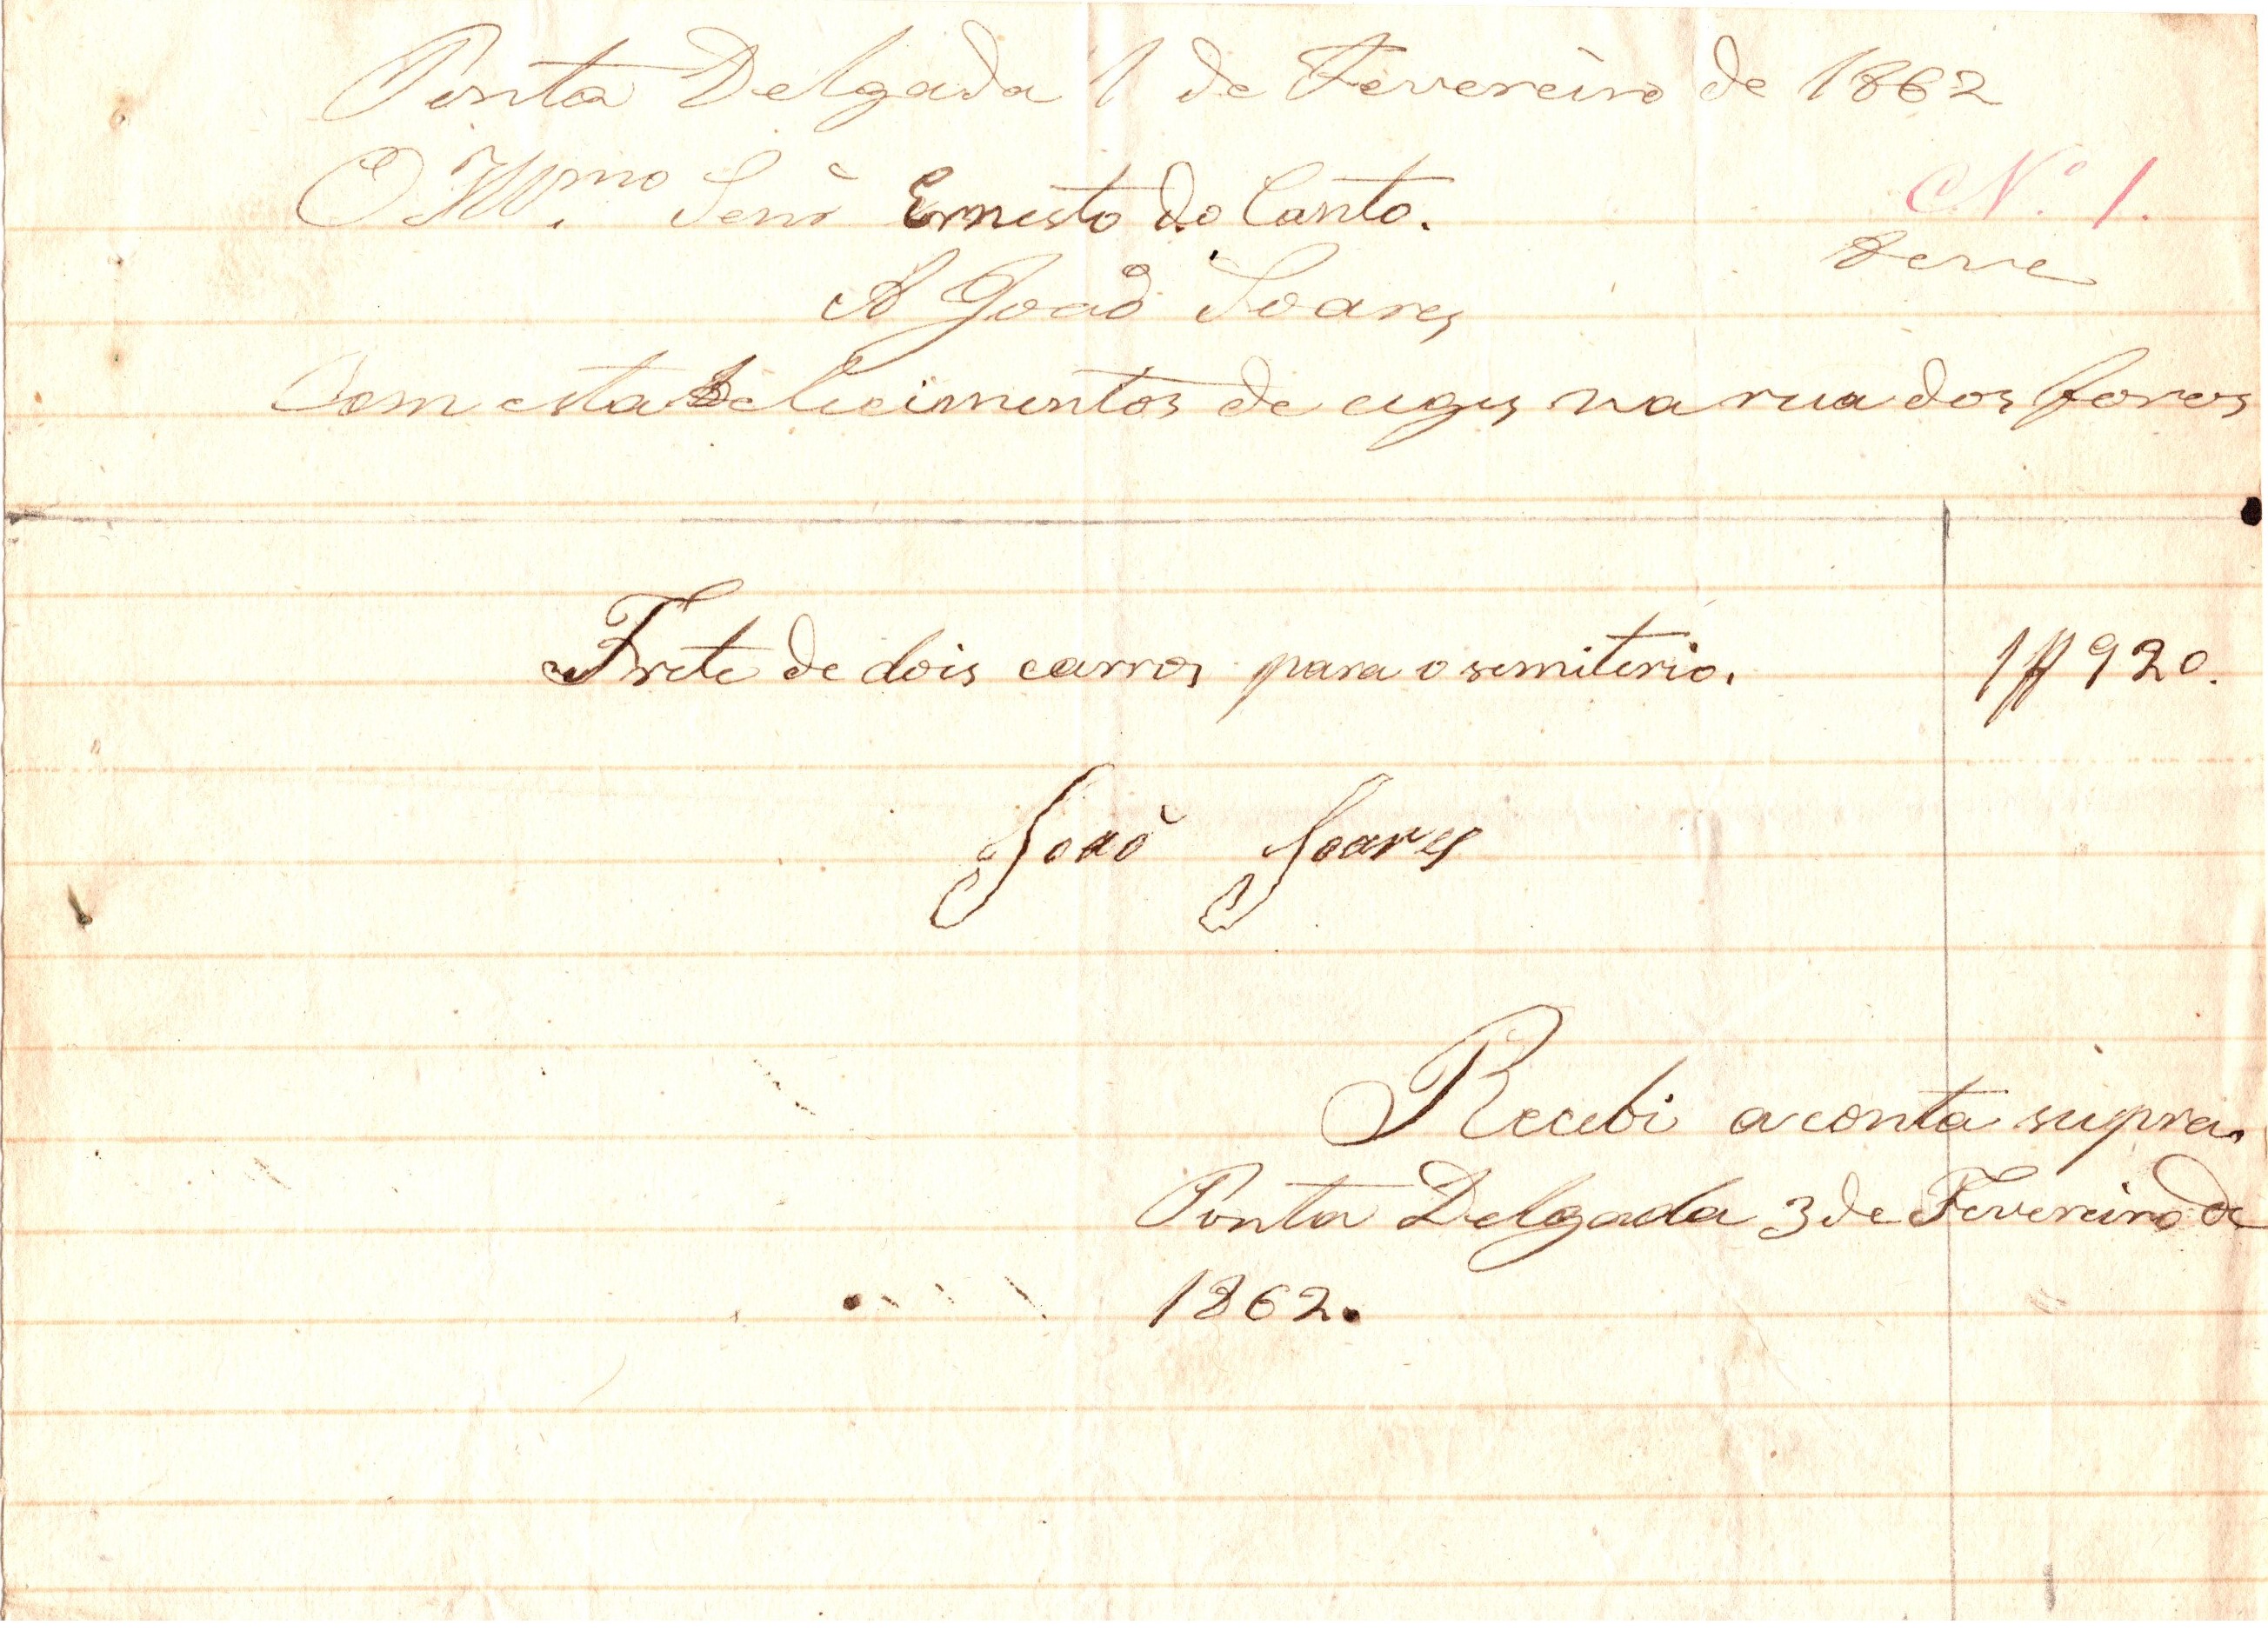 Ponta Delgada 1 de Fevereiro de 1862
O Illmo. Senr Ernesto do Canto.
Nº 1.
Deve
A João Soares
Com estabelicimentos de cegis na rua dos foros
Frete de dois carros para o semiterio.
1$920.
João Soares
Recebi a conta supra.
Ponta Delgada 3 de Fevereiro de
1862.